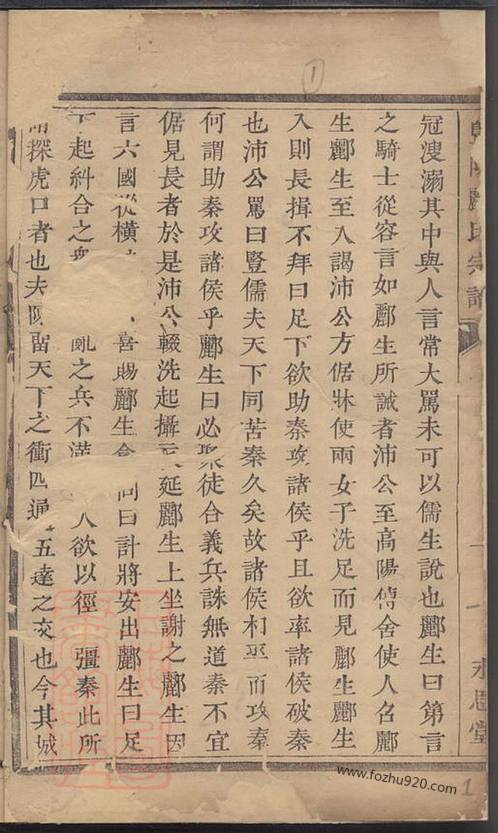 冠溲溺其中與人言常大罵未可以儒生說也酈生曰第言
之騎士從容言如酈生所誡者沛公至高陽傳舍使人召酈
生酈生至入謁沛公方倨牀使兩女子洗足而見酈生酈生
入則長揖不拜曰足下欲助秦攻諸侯乎且欲率諸侯破秦
也沛公罵曰豎儒夫天下同苦秦久矣故諸侯相率而攻秦
何謂助秦攻諸侯乎酈生曰必聚徒合義兵誅無道秦不宜
倨見長者於是沛公輟洗起攝衣延酈生上坐謝之酈生因
言六國從橫 喜賜酈生食問曰計將安出酈生曰足
下起糾合之 亂之兵不滿 人欲以徑 彊秦此所
謂探虎口者也夫陳留天下之衝四通五達之郊也今其城
酈氏宗譜
一
永思堂
1
www.fozhu920.com
1